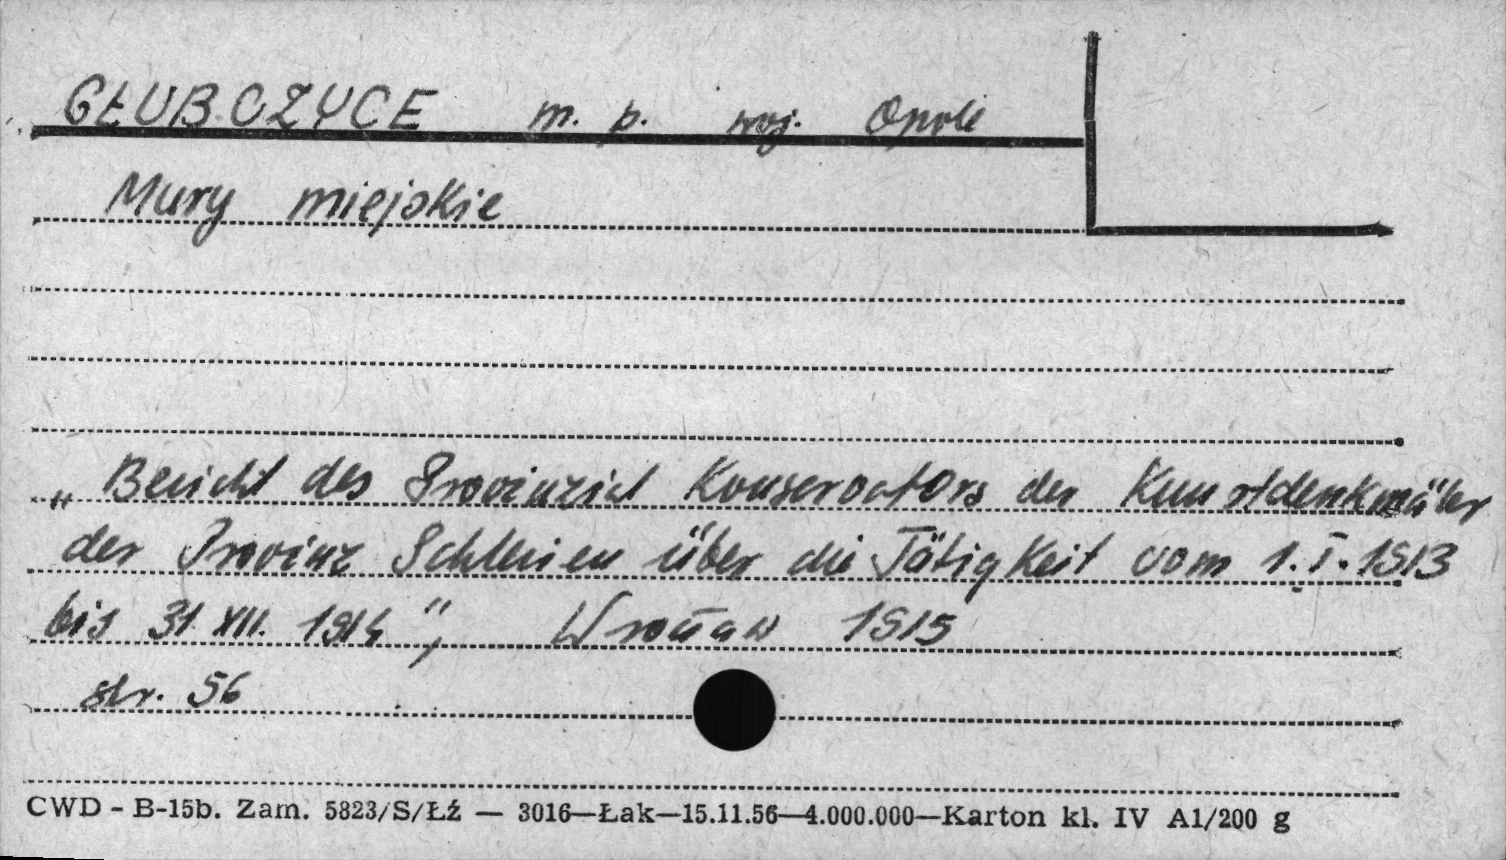 GŁUBCZYCE m. p. woj. Opole
Mury miejskie
„Bericht des Provinzial Konservators der Kunstdenkmäler
der Provinz Schlesien über die Tätigkeit vom 1.I.1913
bis 31 XII. 1914", Wrocław 1915
str. 56
CWD - B-15b. Zam. 5823/S/Łź — 3016—Łak—15.11.56—4.000.000—Karton kl. IV A1/200 g